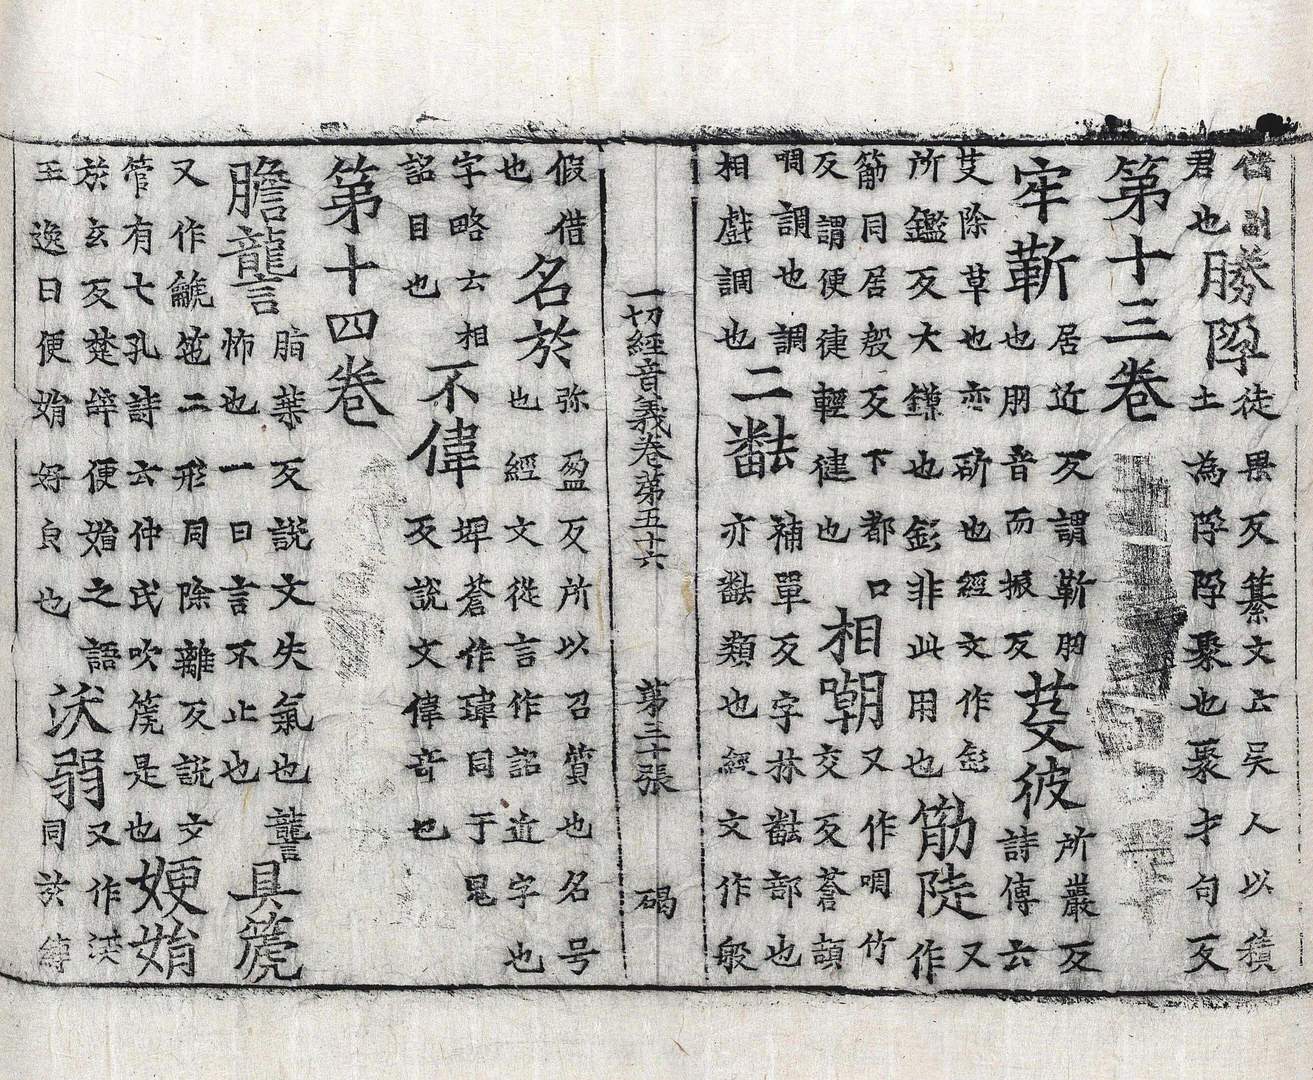 君也勝徒果反纂文云吳人以積
土為聚也聚才句反
第十三卷
牢靳居近反謂靳肕
也肕音而振反芟彼所巖反
詩傳云
芟除草也亦斫也經文作
所鑑反大鎌也非此用也筋陡又
作
筋同居殷反下都口
反謂便徤輕健也相嘲又作啁竹
交反蒼頡
啁調也調
相戲調也二㽎補單反字林㽎部也
亦㽎類也經文作般
一切經音義卷第五十六 第三十張 碣
假借
也名於弥盈反所以召質也名号
也經文從言作詺近字也
字略云相
詺目也不偉埤蒼作瑋同于鬼
反說文偉竒也
第十四卷
膽讋脂葉反說文失氣也讋
怖也一曰言不止也具箎
又作二形同除離反說文
管有七孔詩云仲氏吹箎是也㛹娟
於玄反楚辝便娟之語
王逸曰便娟好皃也洑弱又作
同